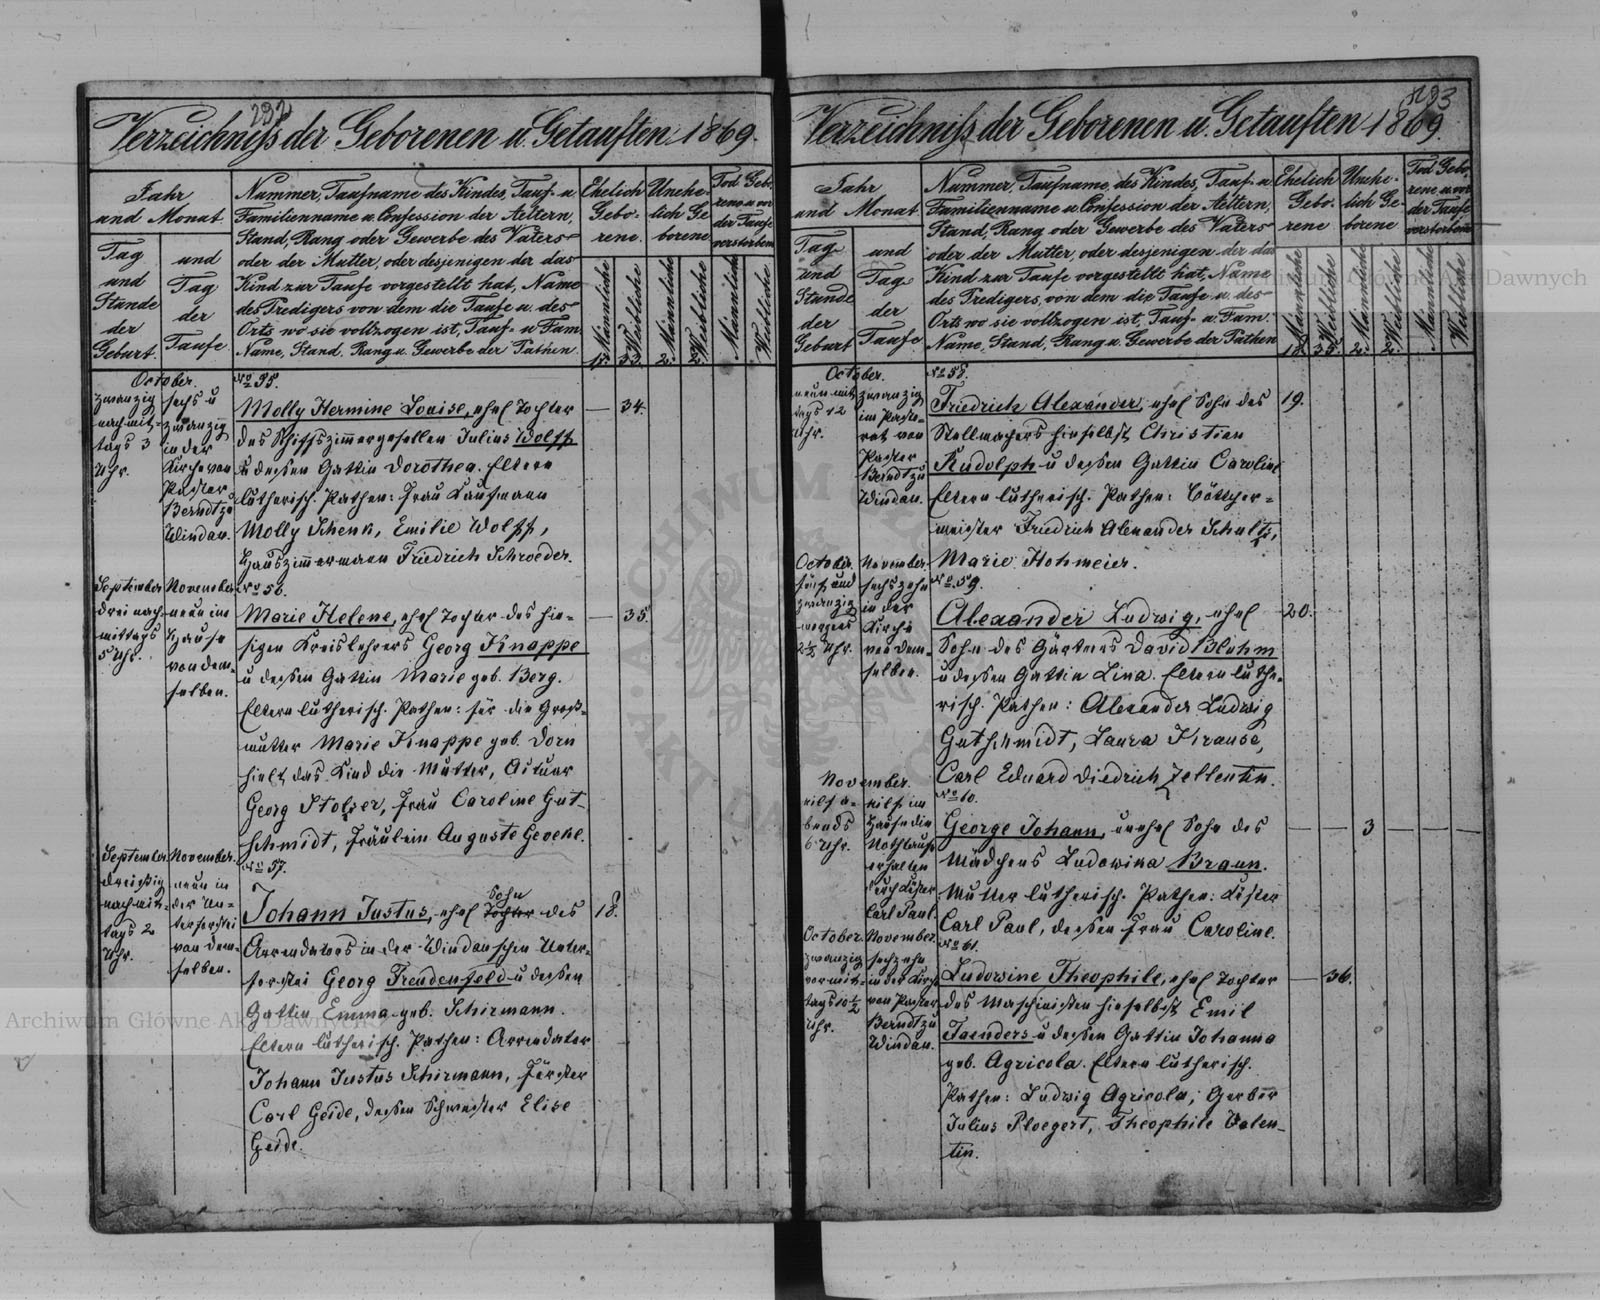 292
Verzeichniß der Geborenen u. Getauften 1869.
Jahr
und Monat
Tag
und
Stunde
der
Geburt.
und
Tag
der
Taufe
Nummer, Taufname des Kindes, Tauf- u.
Familienname u. Confession der Aeltern,
Stand, Rang oder Gewerbe des Vaters
oder der Mutter, oder desjenigen der das
Kind zur Taufe vorgestellt hat, Name
des Predigers von dem die Taufe u. des
Orts wo sie vollzogen ist, Tauf- u. Fam.
Name, Stand, Rang u. Gewerbe der Pathen.
Ehelich
Gebo-
rene.
Unehe-
lich Ge
borene
Tod Gebo-
rene u. vor
der Taufe
verstorbene
Männliche
Weibliche
Männliche
Weibliche
Männlich
Weibliche
17. 33. 2. 2.
October.
zwanzig
nachmit-
tags 3
Uhr.
sechs u
zwanzig
in der
Kirche von
Pastor
Berndt zu
Windau.
No 55.
Molly Hermine Louise, ehel Tochter — 34.
des Schiffszimmergesellen Julius Wolff
u dessen Gattin Dorothea. Eltern
lutherisch. Pathen: Frau Kaufmann
Molly Schenk, Emilie Wolff,
Hauszimmermann Friedrich Schroeder.
September
drei nach-
mittags
5 Uhr.
November
neun im
Hause
von dem-
selben.
No 56.
Marie Helene, ehel Tochter des hie- — 35.
sigen Kreislehrers Georg Knappe
u dessen Gattin Marie geb. Berg.
Eltern lutherisch. Pathen: für die Groß-
mutter Marie Knappe geb. Dorn
hielt das Kind die Mutter, Actuar
Georg Stolzer, Frau Caroline Gut-
schmidt, Fräulein Auguste
September
dreißig
nachmit-
tags 2
Uhr.
November.
neun in
der Un-
terforstei
von dem-
selben.
No 57.
Sohn
Johann Justus, ehel Tochter des 18.
Arrendators in der Windauschen Unter-
forstei Georg Freudenfeld u dessen
Gattin Emma geb. Schirmann.
Eltern lutherisch. Pathen: Arrendator
Johann Justus Schirmann, Förster
Carl Geide, dessen Schwester Elise
Geide.
293
Verzeichniß der Geborenen u. Getauften 1869.
Jahr
und Monat
Tag
und
Stunde
der
Geburt
und
Tag
der
Taufe
Nummer, Taufname, des Kindes, Tauf- u.
Familienname u. Confession der Aeltern,
Stand, Rang oder Gewerbe des Vaters
oder der Mutter, oder desjenigen der das
Kind zur Taufe vorgestellt hat, Name
des Predigers, von dem die Taufe u. des
Orts wo sie vollzogen ist, Tauf- u. Fam.
Name, Stand, Rang u. Gewerbe der Pathen
Ehelich
Gebo-
rene
Unehe-
lich Ge-
borene
Tod Gebo-
rene u. vor
der Taufe
verstorbene
Männliche
Weibliche
Männliche
Weibliche
Männliche
Weibliche
18. 35. 2. 2.
October.
neun mit-
tags 12
Uhr.
zwanzig
im Pasto-
rat von
Pastor
Berndt zu
Windau.
No 58.
Friedrich Alexander, ehel Sohn des 19.
Stellmachers hieselbst Christian
Rudolph u dessen Gattin Caroline
Eltern lutherisch. Pathen: Böttcher-
meister Friedrich Alexander Schultz,
Marie Hohmeier.
October.
fünf und
zwanzig
morgens
2½ Uhr.
November.
sechszehn
in der
Kirche
von dem-
selben.
No. 59.
Alexander Ludwig, ehel 20.
Sohn des Gärtners David Bluhm
u dessen Gattin Lina. Eltern luthe-
risch. Pathen: Alexander Ludwig
Gutschmidt, Laura Krause,
Carl Eduard Diedrich Zellentin.
November.
eilf a-
bends
6 Uhr.
eilf im
Hause die
Nothtaufe
erhalten
durch Küster
Carl Paul.
No 60.
George Johann, unehel Sohn des — — 3 — — —
Mädchens Ludowika Braun.
Mutter lutherisch. Pathen: Küster
Carl Paul, dessen Frau Caroline.
October.
zwanzig
vormit-
tags 10½
Uhr.
November.
sechzehn
in der Kirche
von Pastor
Berndt zu
Windau.
No 61.
Ludowine Theophile, ehel Tochter — 36.
des Maschinisten hieselbst Emil
Faenders u dessen Gattin Johanna
geb. Agricola. Eltern lutherisch.
Pathen: Ludwig Agricola, Gerber
Julius Ploegert, Theophile Valen-
tin.
Archiwum Główne Akt Dawnych
Archiwum Główne Akt Dawnych